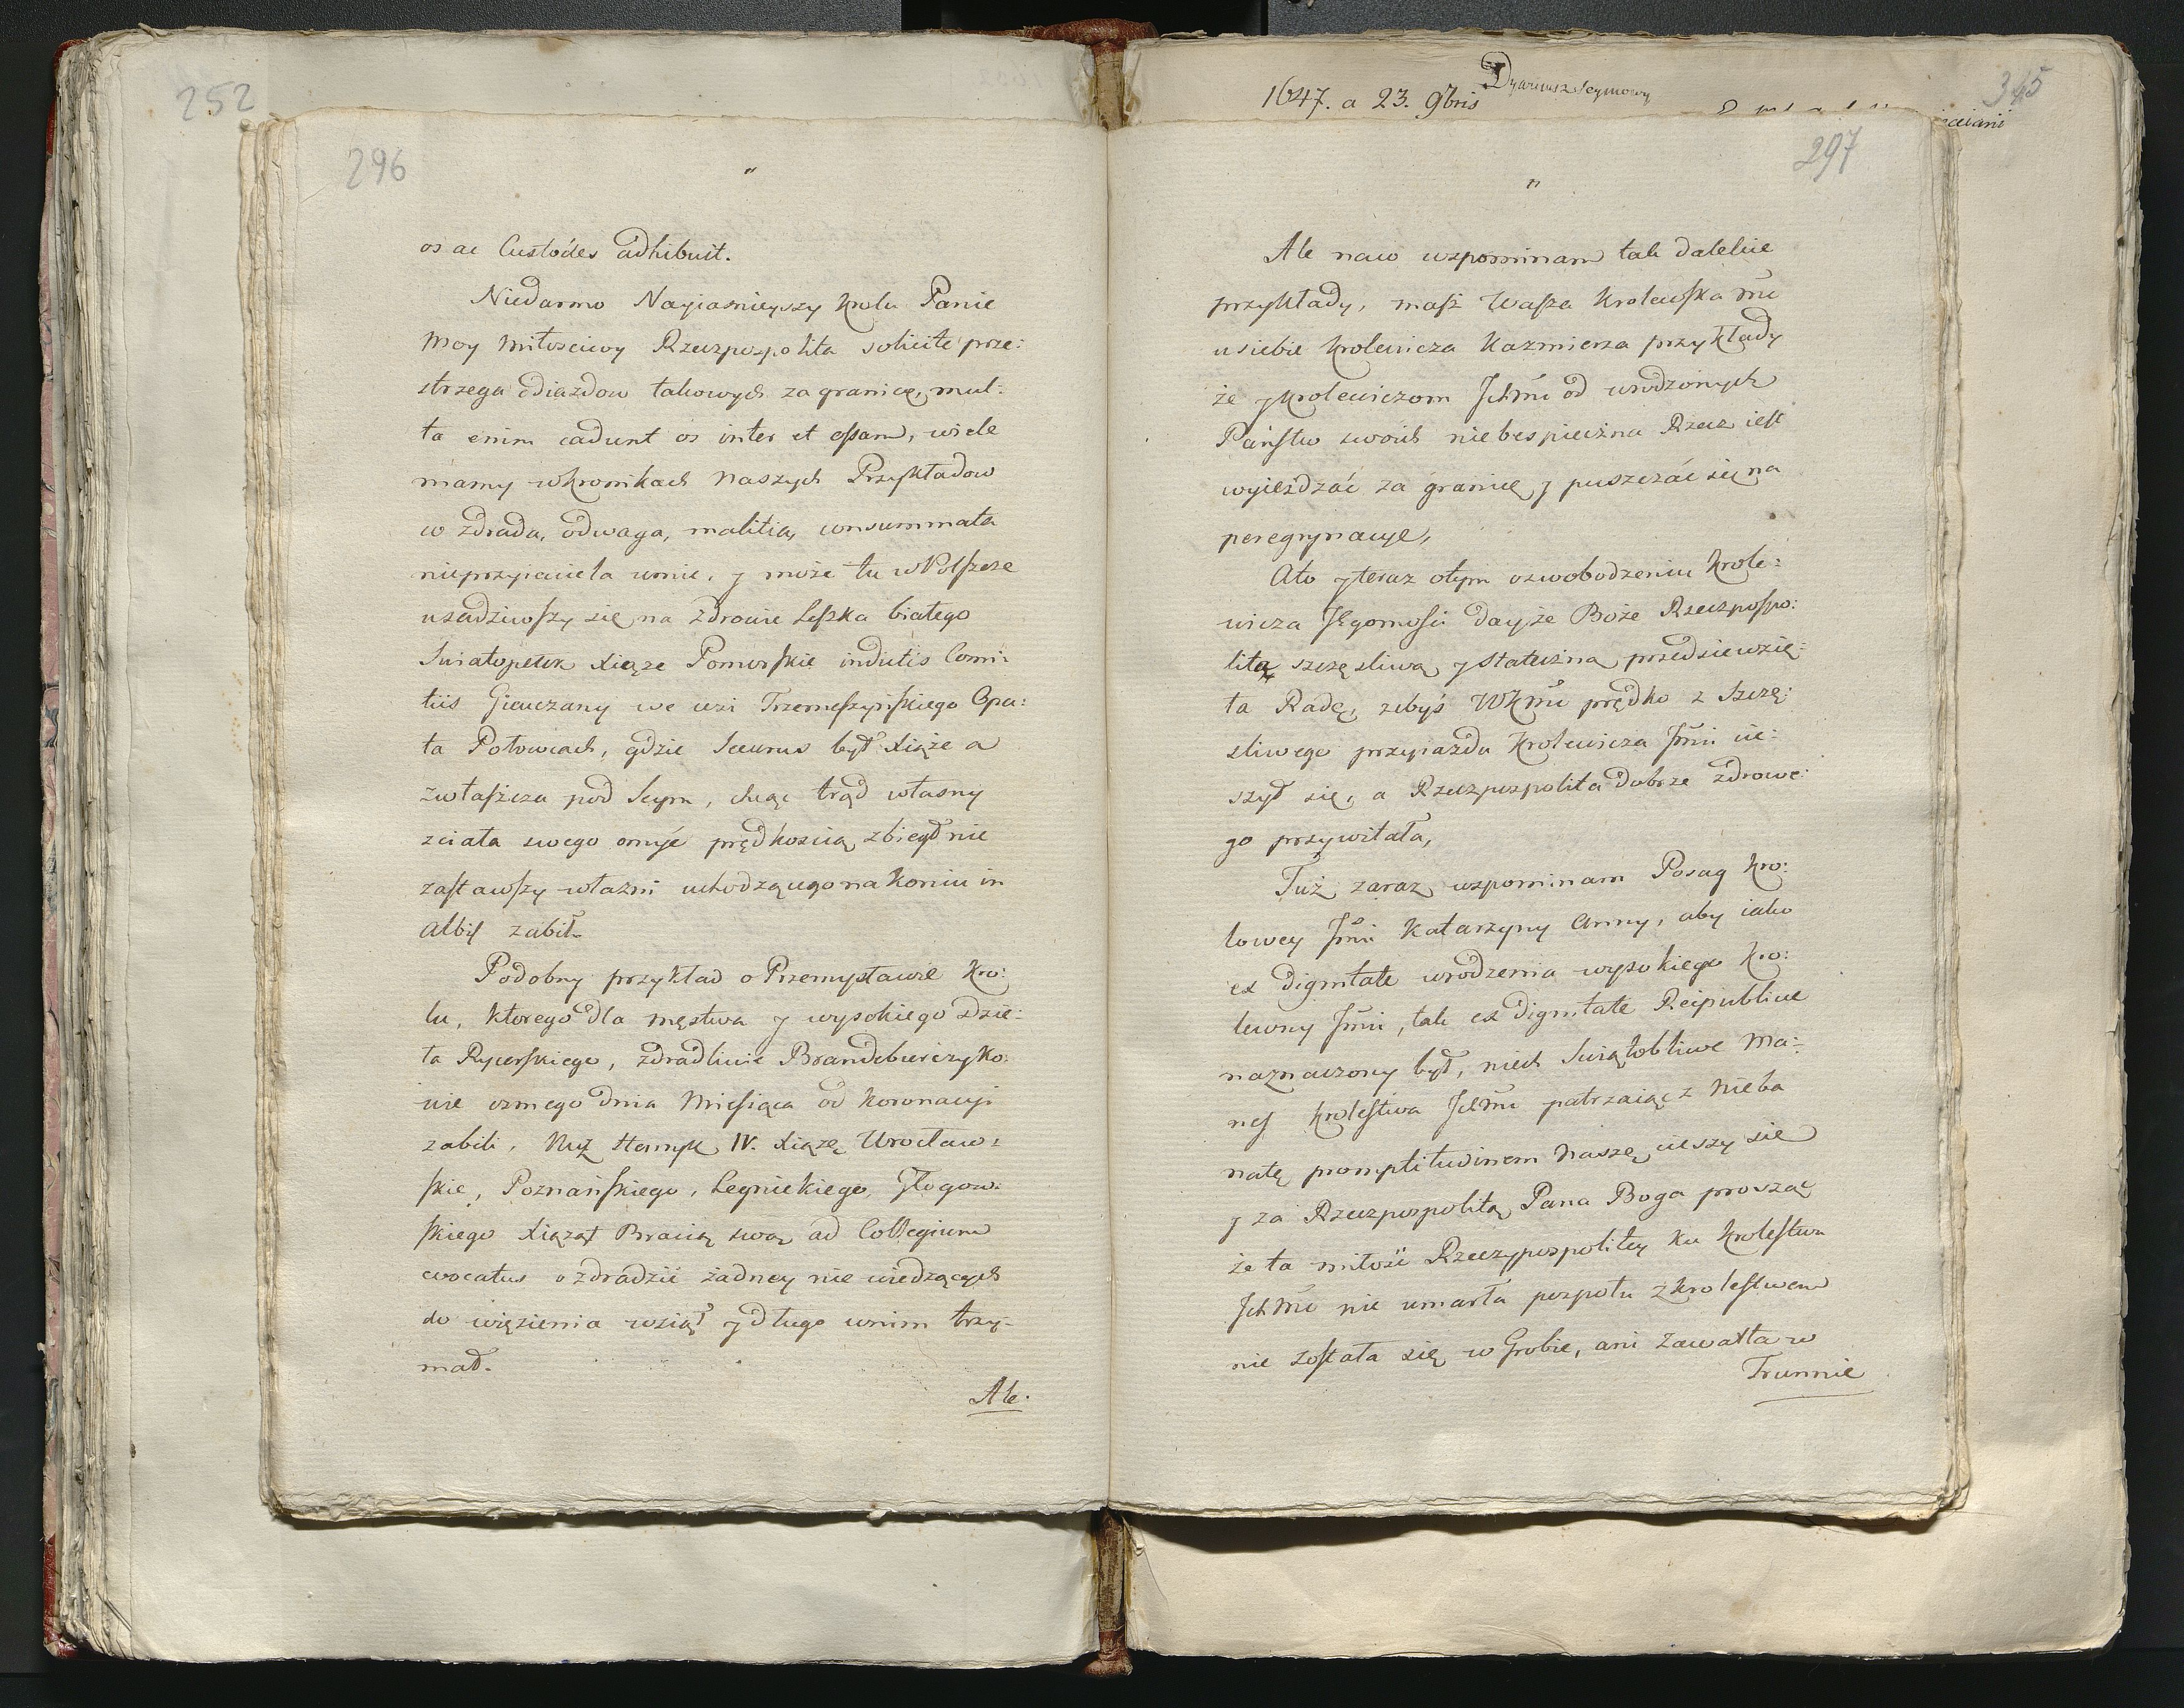 252
296
"
os ac Custodes adhibuit.
Niedarmo Nayiasnieyszy Krolu Panie
moy miłosciwy Rzeczpospolita solicite prze:
strzega odiazdow takowych za granicę, mul:
ta enim cadunt os inter et ossam, wiele
mamy w kronikach naszych Przykładow
co zdrada, odwaga, malitia, consummata
nieprzyiaciela umie, y może tu w Polszcze
usadziwszy się na zdrowie Leszka białego
Swiatopełek Xiąże Pomorskie indictis Comi:
tiis Gieuczany we wsi Trzemeszyńskiego Opa:
ta Potowcach, gdzie Securus był Xiąże a
zwłaszcza pod Seym, chcąc trąd własny
zciała swego omyć prędkoscią zbiegł nie
zastawszy w łazni uchodzącego na koniu in
Albis zabił.
Podobny przykład o Przemysławie Kro:
lu, ktorego dla męstwa y wysokiego dzie:
ła Rycerskiego, zdradliwie Brandeburczyko:
wie osmego dnia Miesiąca od koronacyi
zabili. Nuż Henryk IV. Xiąże Wrocław:
skie, Poznańskiego, Legnickiego, Głogow:
skiego Xiąząt Bracią swą ad Collegium
evocatus o zdradzie żadney nie wiedzących
do więzienia wziął y długo w nim trzy:
mał.
Ale.
1647. a 23. 9bris Dyariusz Seymowy
345
297
"
Ale naco wspominam tak dalekie
przykłady, masz Wasza Krolewska Mć
u siebie Krolewicza Kazmierza przykłady
że y Krolewiczom Ichmć od urodzonych
Państw swoich niebespieczna Rzecz iest
wyieżdzać za granicę y puszczać się na
peregrynacye,
Ato y teraz otym oswobodzeniu Krole:
wicza Jegomości dayże Boże Rzeczpospo:
litą szczęsliwą y stateczna przedsiewzię:
ta Radę, zebyś WKMć prędko z szczę:
sliwego przyiazdu Krolewicza Jmci cie:
szył się, a Rzeczpospolita dobrze zdrowe:
go przywitała,
Tuż zaraz wspominam Posag Kro:
lowey Jmci Katarzyny Anny, aby iako
ex dignitate urodzenia wysokiego Kro:
lewny Jmci, tak ex dignitate Reipublicae
naznaczony był, niech Swiątobliwe Ma:
nes Krolestwa Ichmć patrzaiąc z Nieba
na tę promptitudinem naszę cieszy sie
y za Rzeczpospolitą Pana Boga proszą
że ta miłość Rzeczypospolitey ku Krolestwu
Ichmć nie umarła pospołu z Krolestwem
nie została się w Grobie, ani zawarła w
Trunnie